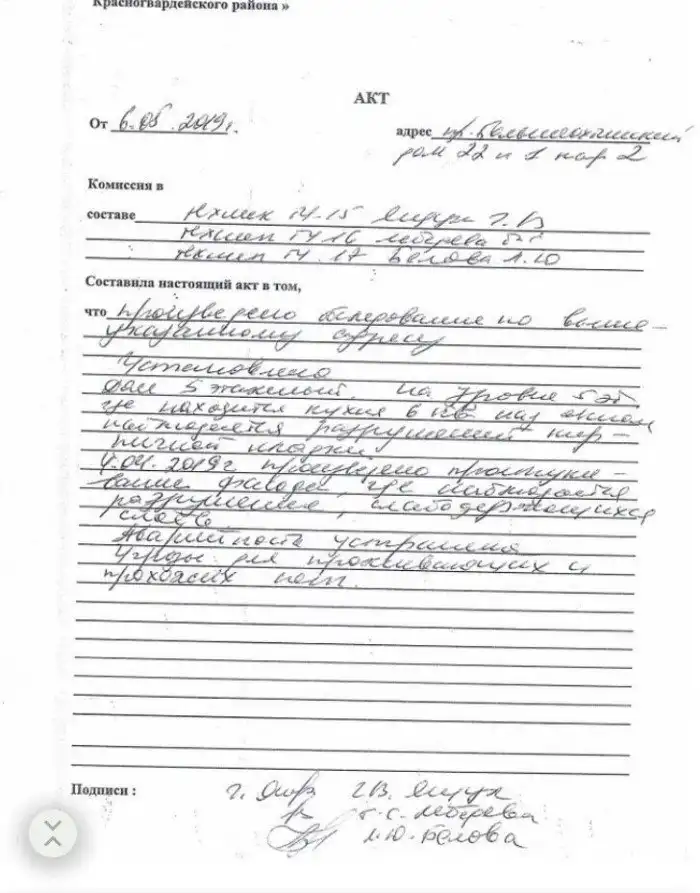 Красногвардейского района »
АКТ
От 6.05.2019г. адрес пр. Большеохтинский
дом 22 к 1 пар 2
Комиссия в
составе Нхмск ТУ-15 Ящук Г.В
ТУ 16 Г.С
ТУ 17 Белова Л.Ю
Составила настоящий акт в том,
что произведено обследование по выше-
указанному адресу
Установлено
Дом 5 этажный. На уровне 5 эт,
где находится кухня 6 кв над окном
наблюдается разрушений кир-
пичной кладки
4.04.2019г произведено простуки-
вание фасада, где наблюдается
разрушения, слабодержащихся
слоёв
Аварийность устранена
Угрозы для проживающих и
прохожих нет.
Подписи : Г.В. Ящук
Г.С.
Л.Ю. Белова